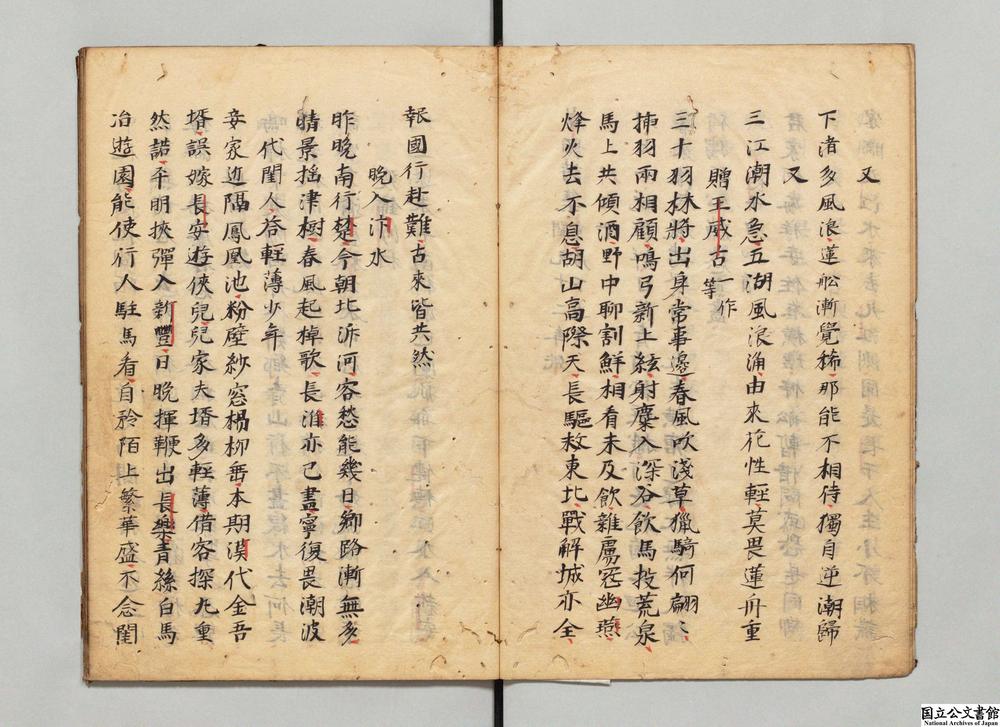 下渚多風浪蓮舩漸覺稀那能不相待獨自逆潮歸
又
三江潮水急五湖風浪涌由來花性輕莫畏蓮舟重
贈王威古一作等
三十羽林將出身常事邊春風吹淺草獵騎何翩〻
挿羽兩相顧鳴弓新上絃射麋入深谷飲馬投荒泉
馬上共傾酒野中聊割鮮相看未及飲雜虜冦幽燕
烽火去不息胡山高際天長驅救東北戰解城亦全
報國行赴難古來皆共然
晚入汴水
昨晚南行楚今朝北泝河客愁能幾日鄉路漸無多
晴景揺津樹春風起棹歌長淮亦已盡寧復畏潮波
代閨人荅輕薄少年
妾家近隔鳳凰池粉壁紗窓楊柳垂本期漢代金吾
壻誤嫁長安遊俠兒兒家夫壻多輕薄借客探丸重
然諾平明挾彈入新豐日晚揮鞭出長樂青絲白馬
冶遊園能使行人駐馬看自矜陌上繁華盛不念閨
国立公文書館
National Archives of Japan